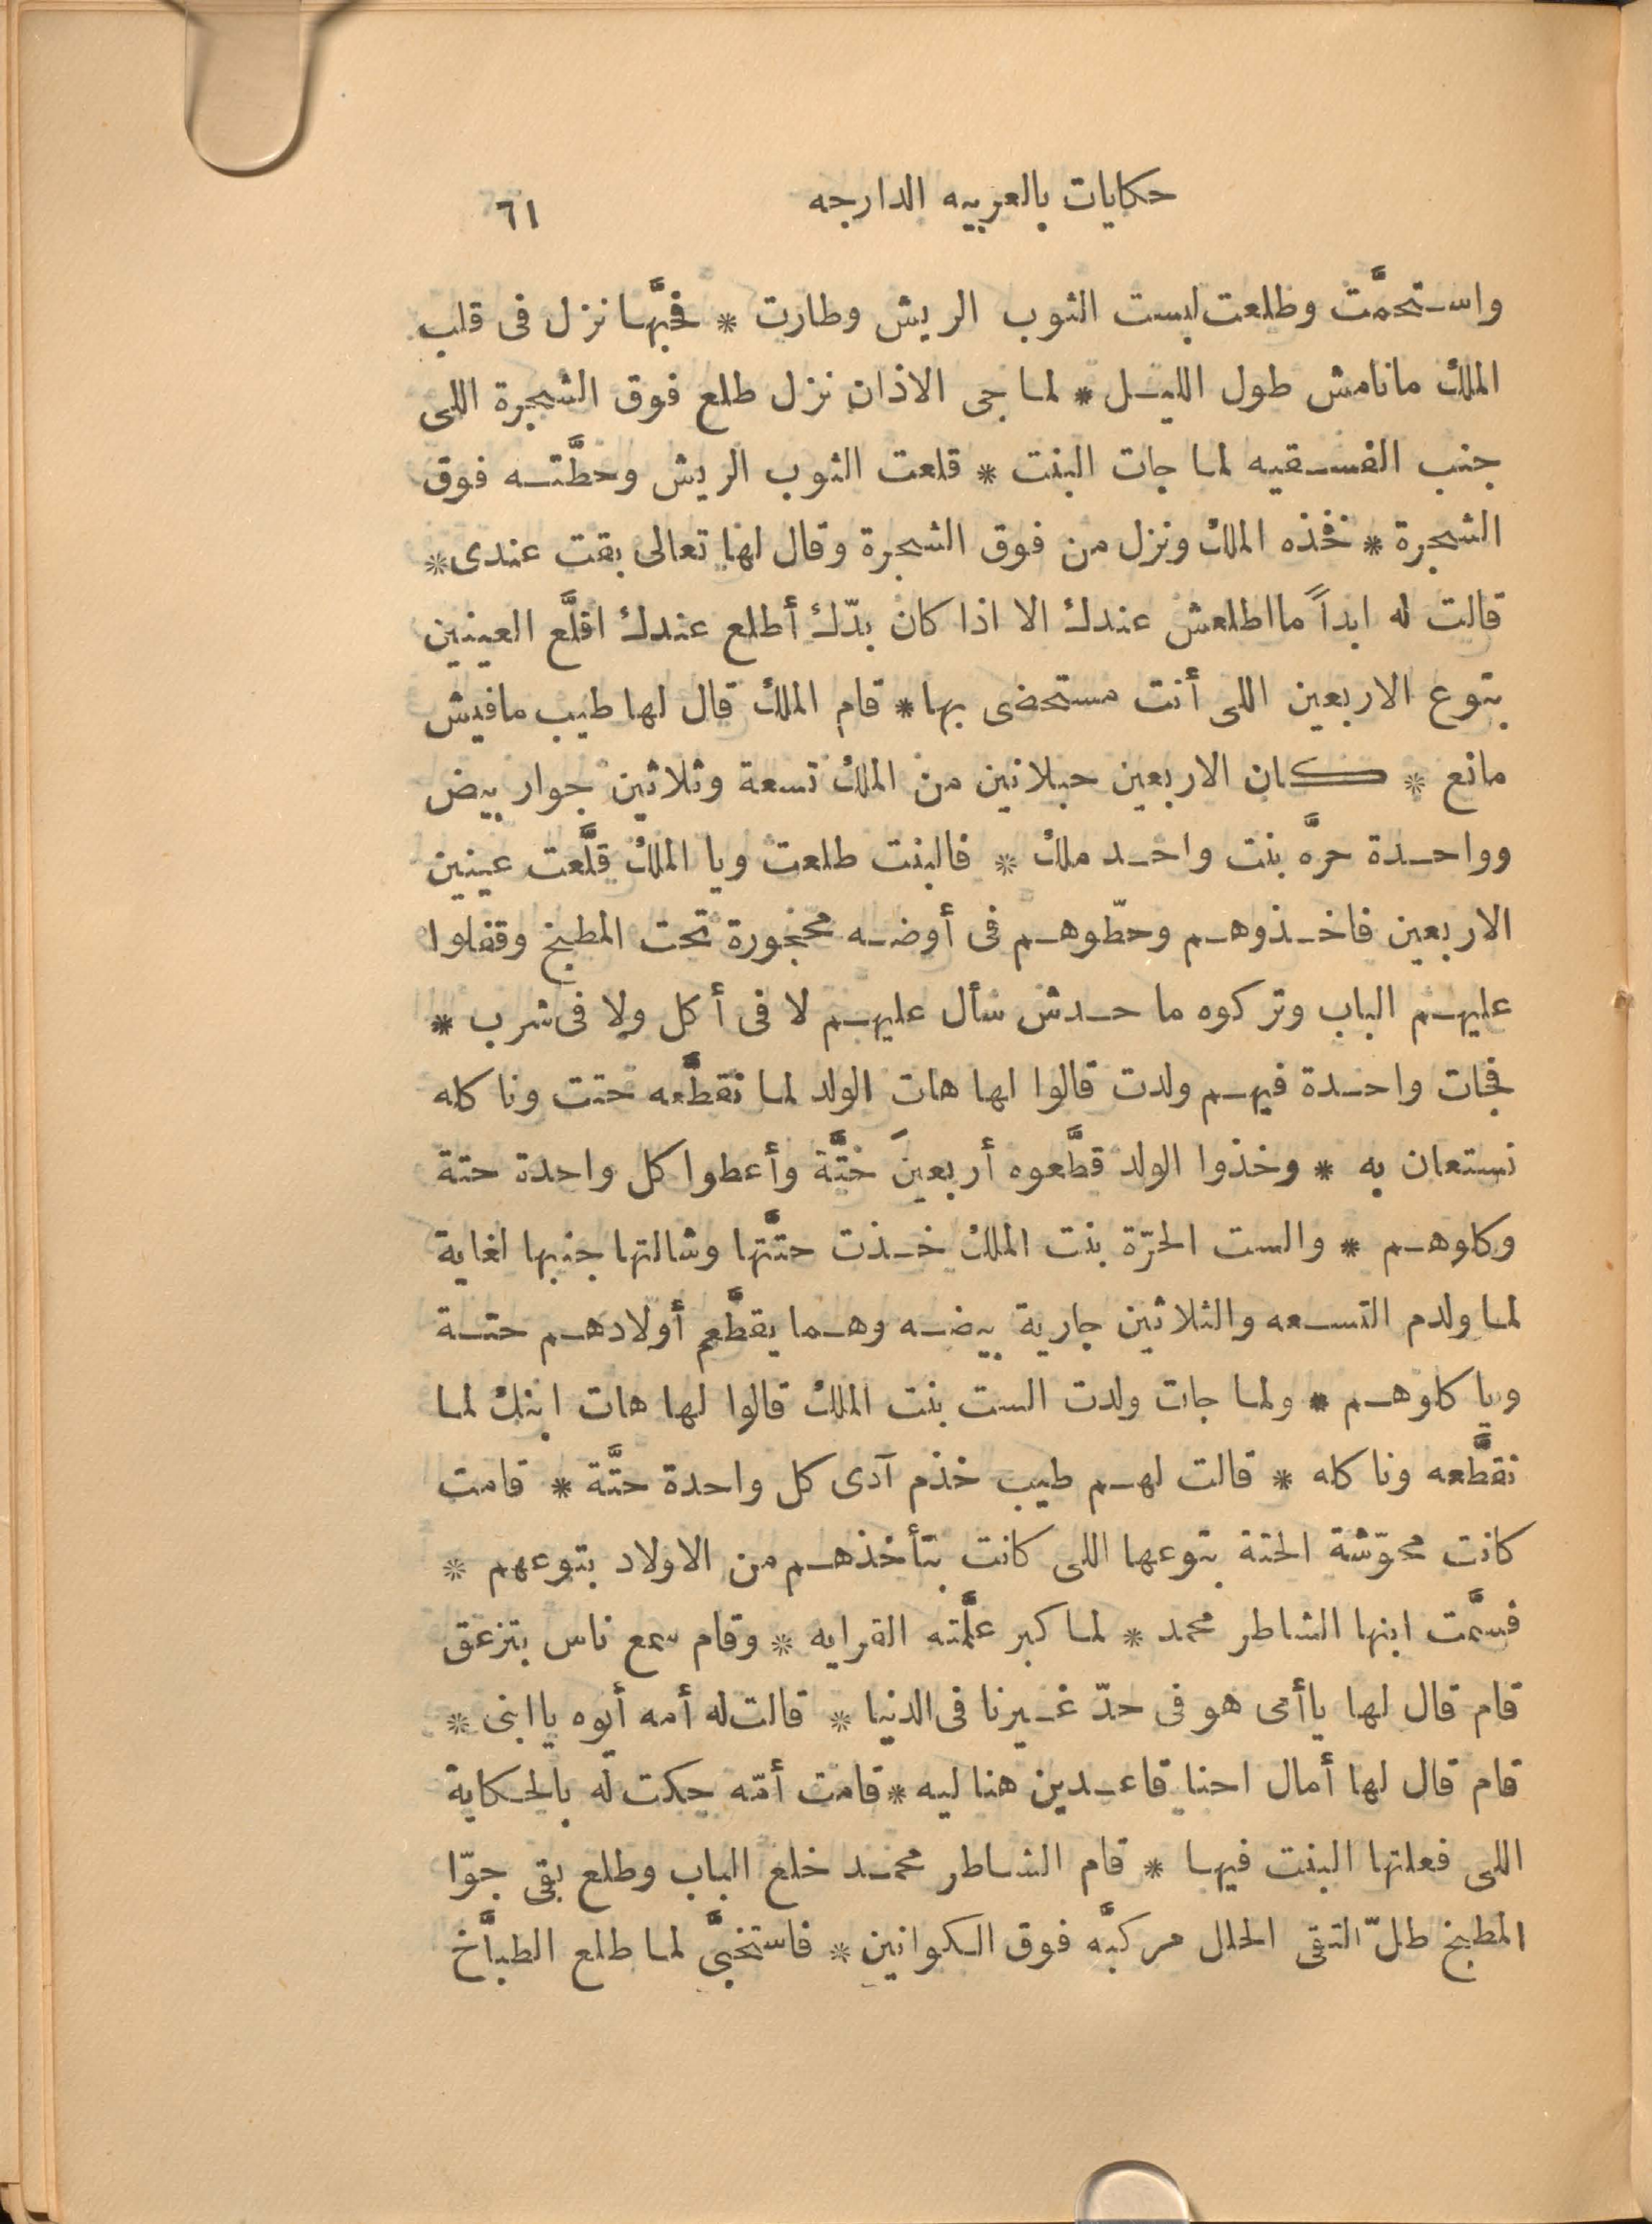 حكايات بالعربيه الدارجه ٦١
واستحمَّت وطلعت لبست الثوب الريش وطارت * فحبَّها نزل فى قلب
الملك مانامش طول الليل * لما جى الاذان نزل طلع فوق الشجرة اللى
جنب الفسقيه لما جات البنت * قلعت الثوب الريش وحطَّته فوق
الشجرة * فخذه الملك ونزل من فوق الشجرة وقال لها تعالى بقت عندى *
قالت له ابداً مااطلعش عندك الا اذا كان بدّك أطلع عندك اقلَّع العينين
بتوع الاربعين اللى أنت مستحضى بها * قام الملك قال لها طيب مافيش
مانع * كان الاربعين حبلانين من الملك تسعة وثلاثين جوار بيض
وواحدة حرَّه بنت واحد ملك * فالبنت طلعت ويا الملك قلَّعت عينين
الاربعين فاخذوهم وحطّوهم فى أوضه محجورة تحت المطبخ وقفلوا
عليهم الباب وتركوه ما حدش سأل عليهم لا فى أكل ولا فى شرب *
فجات واحدة فيهم ولدت قالوا لها هات الولد لما نقطَّعه حتت وناكله
نستعان به * وخذوا الولد قطَّعوه أربعينَ حتَّة وأعطوا كل واحدة حتة
وكلوهم * والست الحرّة بنت الملك خذت حتَّتها وشالتها جنبها لغاية
لما ولدم التسعه والثلاثين جارية بيضه وهما يقطَّعم أولادهم حتة
وياكلوهم * ولما جات ولدت الست بنت الملك قالوا لها هات ابنك لما
نقطَّعه وناكله * قالت لهم طيب خذم آدى كل واحدة حتَّة * قامت
كانت محوّشة الحتة بتوعها اللى كانت بتأخذهم من الاولاد بتوعهم *
فسمَّت ابنها الشاطر محمد * لما كبر علَّمته القرايه * وقام سمع ناس بتزعق
قام قال لها ياأمى هو فى حدّ غيرنا فى الدنيا * قالت له أمه أيوه ياابنى *
قام قال لها أمال احنا قاعدين هنا ليه * قامت أمّه حكت له بالحكاية
اللى فعلتها البنت فيها * قام الشاطر محمد خلع الباب وطلع بقى جوّا
المطبخ طلّ التقى الحلل مركبَّه فوق الكوانين * فاستخبَّى لما طلع الطبَّاخ